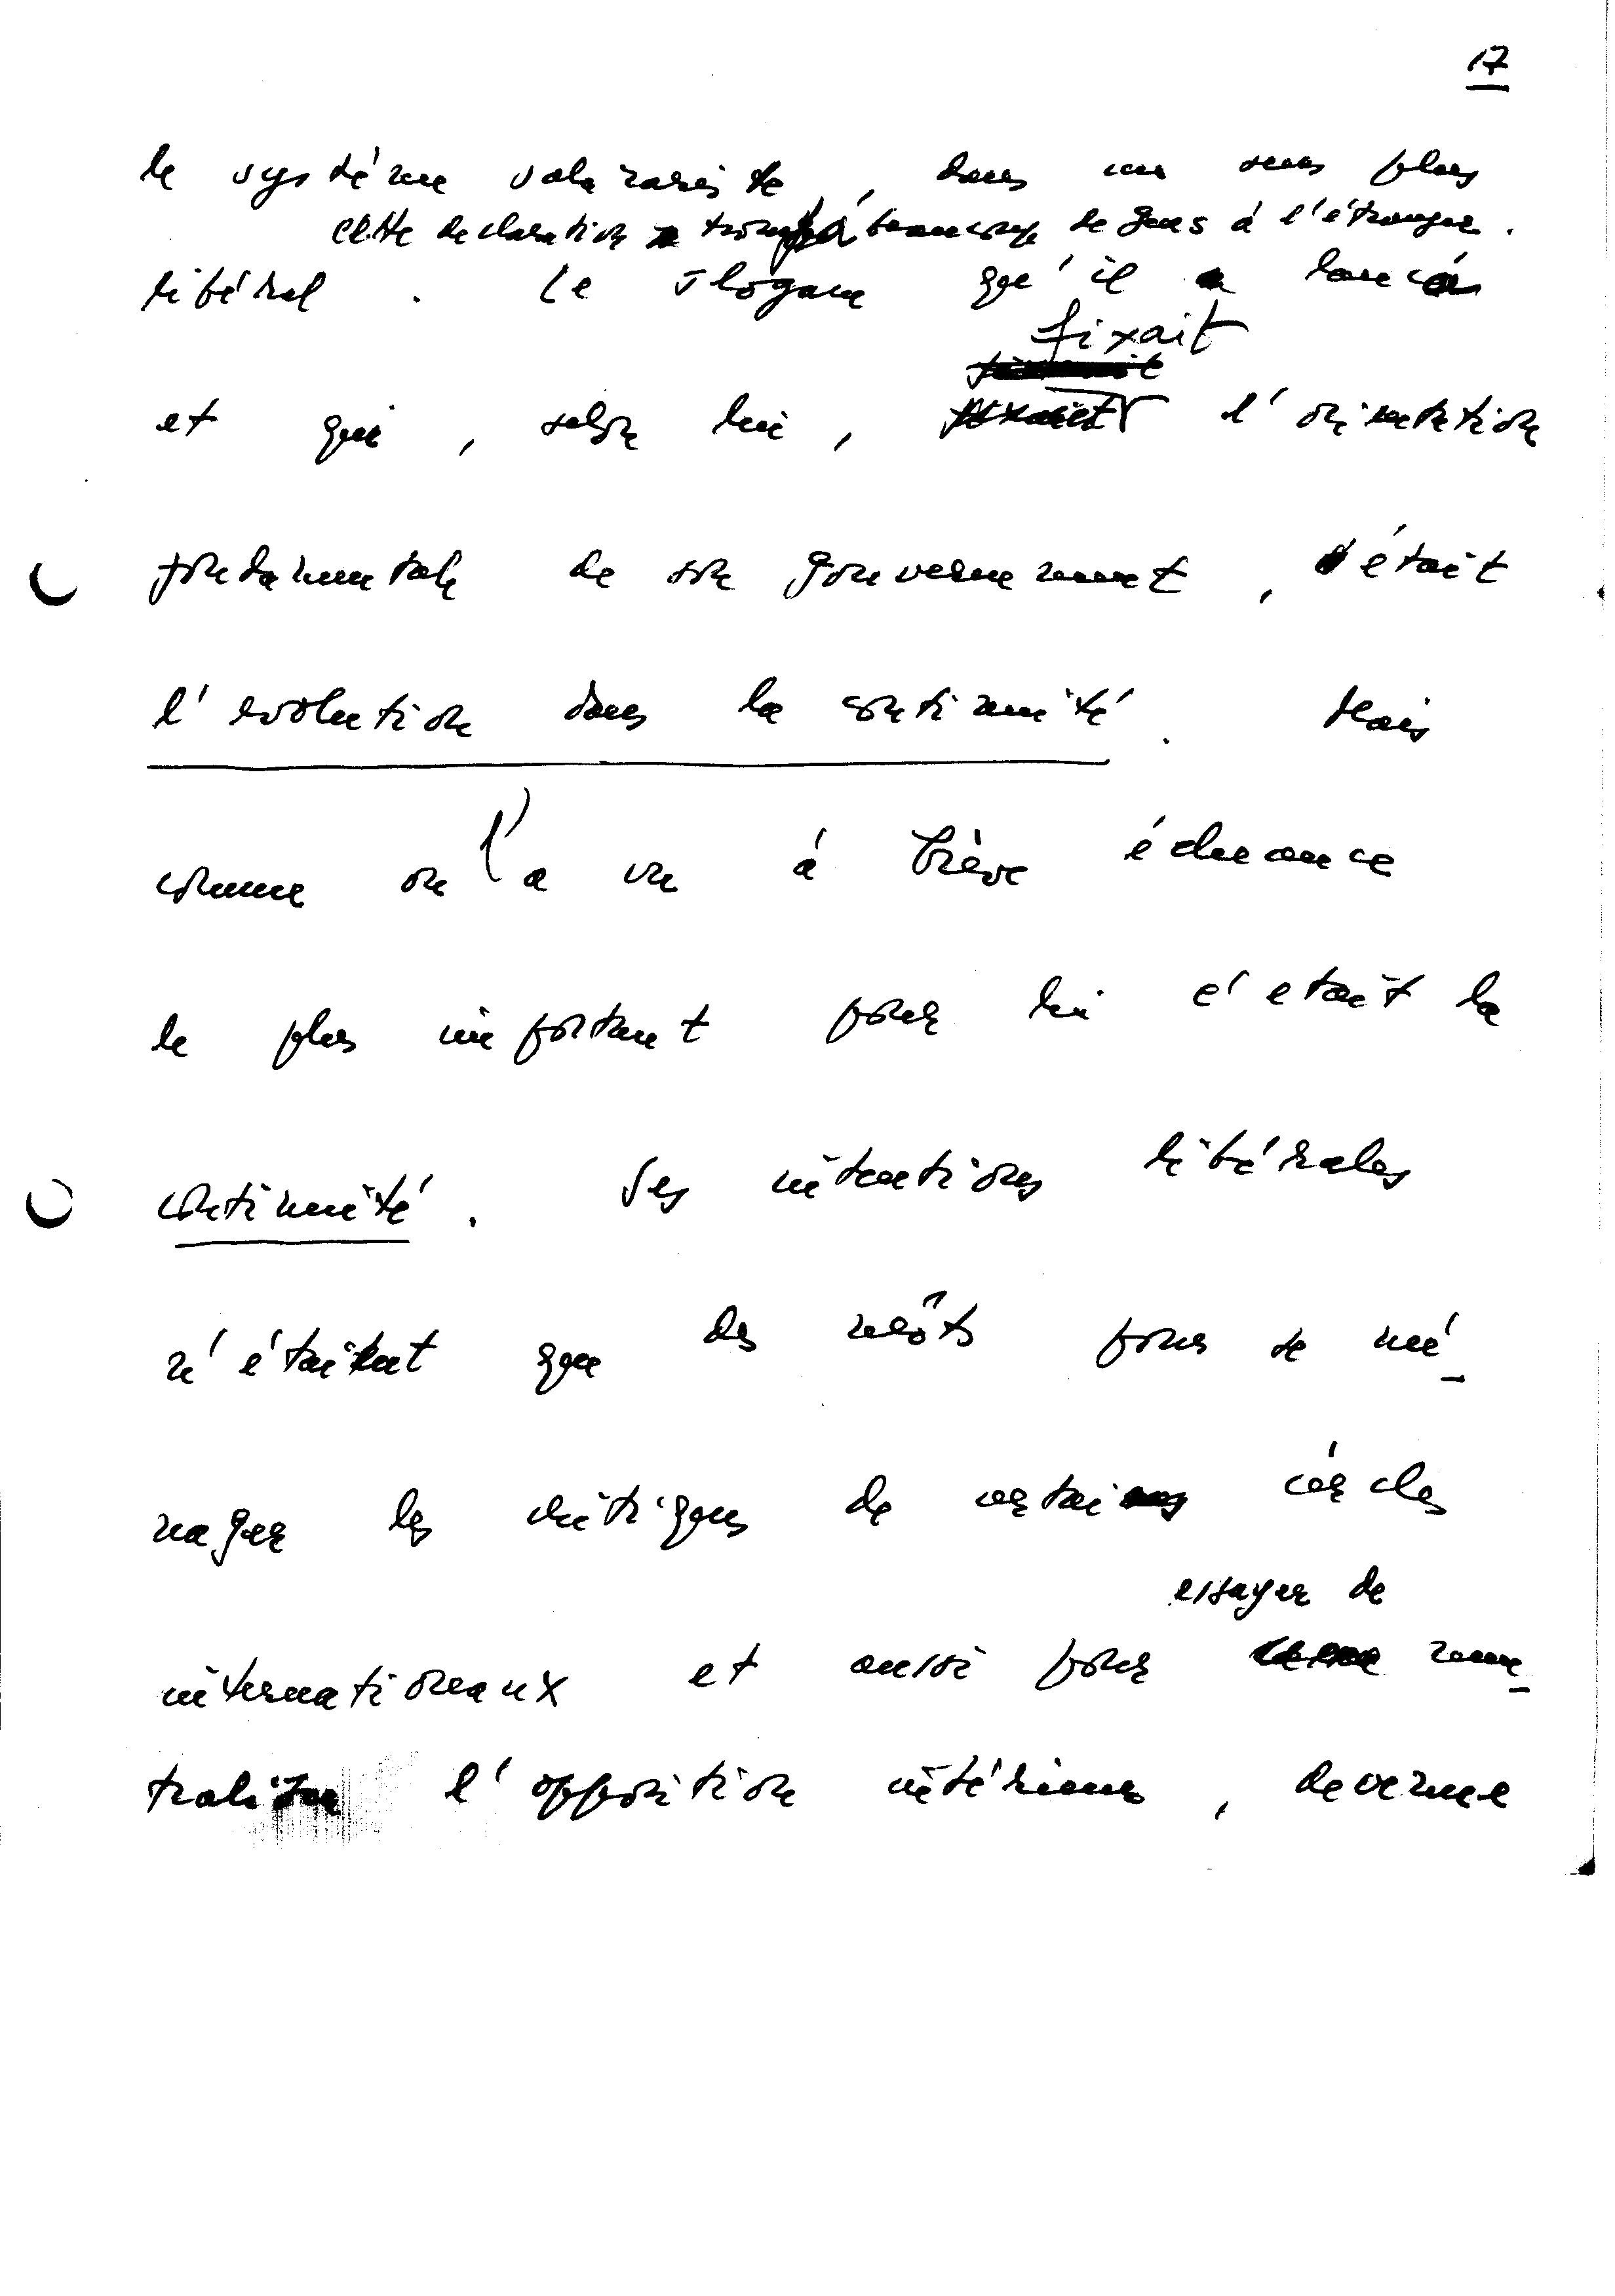 17
le système salazariste, dans un sens plus
cette declaration trompa beaucoup de gens à l'étranger.
libéral. Le slogan qu'il lança
fixait
et qui, selon lui, l'orientation
fondamentale de son gouvernement, était
l'evolution dans la continuité. Mais
comme on l'a vu à brève écheance
le plus important pour lui c'etait la
continuité. Ses intentions libérales
n'étaient que des mots pour se mé-
nager les critiques de certains cércles
essayer de
internationaux et aussi pour neu-
traliser l'opposition intérieure, devenue